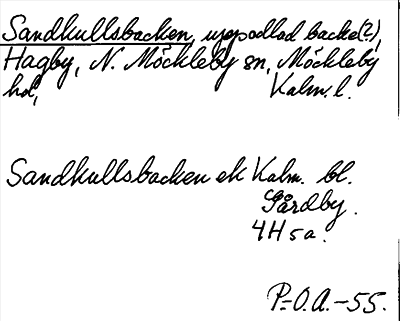 Sandkullsbacken, uppodlad backe(?),
Hagby, N. Möckleby sn, Möckleby
hd, Kalm. l.
Sandkullsbacken ek Kalm. bl.
Gårdby.
4H 5a.
P.-O.A. -55.